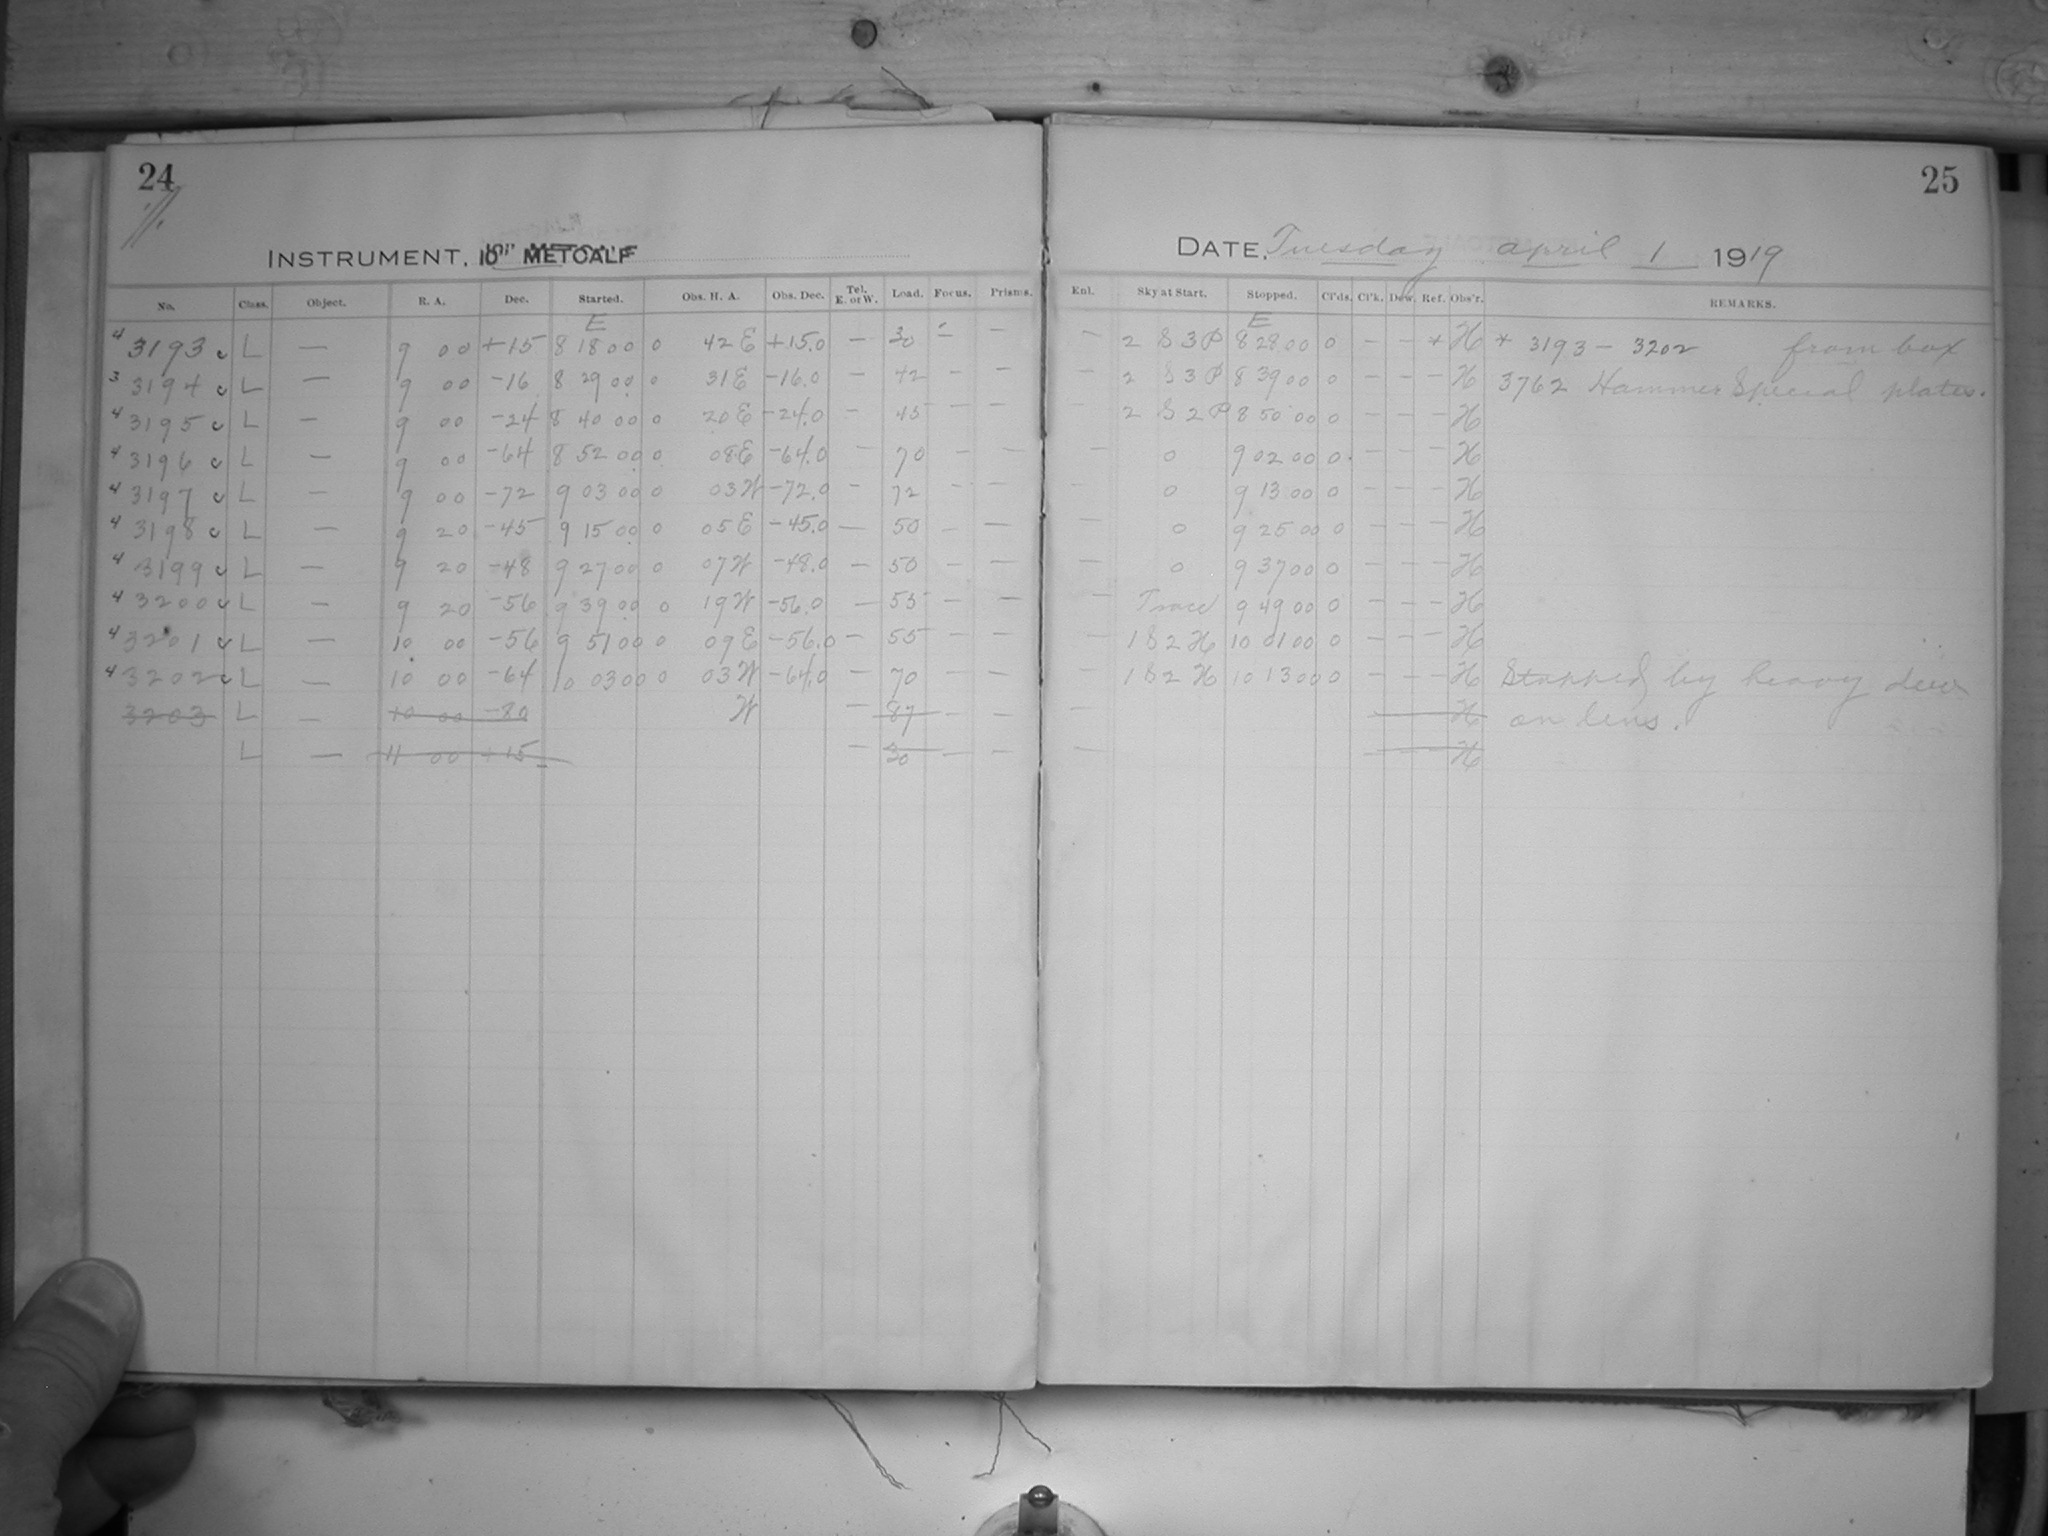 24
25
INSTRUMENT, 10" METCALF
DATE, Tuesday April 1 1919
No. Class. Object. R. A. Dec. Started. Obs. H. A. Obs. Dec. Tel. E. or W. Load. Focus. Prisms. Enl. Sky at Start. Stopped. Cl'ds. Cl'k. Dew. Ref. Obs'r. REMARKS.
E E
4 3193 c L — 9 00 +15 8 18 00 0 42 E +15.0 — 30 — — — 2 S 3 P 8 28 00 0 — — * H * 3193 - 3202 from box
3 3194 c L — 9 00 -16 8 29 00 0 31 E -16.0 — 42 — — — 2 S 3 P 8 39 00 0 — — — H 3762 Hammer Special plates.
4 3195 c L — 9 00 -24 8 40 00 0 20 E -24.0 — 45 — — — 2 S 2 P 8 50 00 0 — — — H
4 3196 c L — 9 00 -64 8 52 00 0 08 E -64.0 — 70 — — — 0 9 02 00 0 — — — H
4 3197 c L — 9 00 -72 9 03 00 0 03 W -72.0 — 72 — — — 0 9 13 00 0 — — — H
4 3198 c L — 9 20 -45 9 15 00 0 05 E -45.0 — 50 — — — 0 9 25 00 0 — — — H
4 3199 c L — 9 20 -48 9 27 00 0 07 W -48.0 — 50 — — — 0 9 37 00 0 — — — H
4 3200 c L — 9 20 -56 9 39 00 0 19 W -56.0 — 55 — — — Trace 9 49 00 0 — — — H
4 3201 c L — 10 00 -56 9 51 00 0 09 E -56.0 — 55 — — — 1 S 2 H 10 01 00 0 — — — H
4 3202 c L — 10 00 -64 10 03 00 0 03 W -64.0 — 70 — — — 1 S 2 H 10 13 00 0 — — — H Stopped by heavy dew
3203 L — 10 00 -80 W — 87 — — — H on lens.
L — 11 00 +15 — 30 — — — H